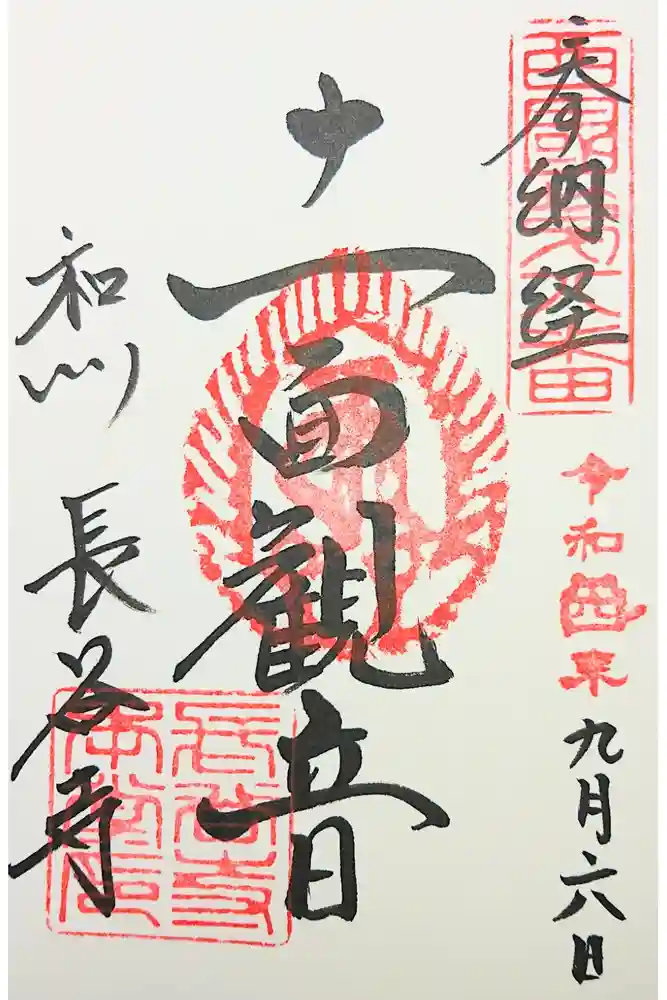 奉納経
令和四年
九月六日
十一面観音
和州 長谷寺